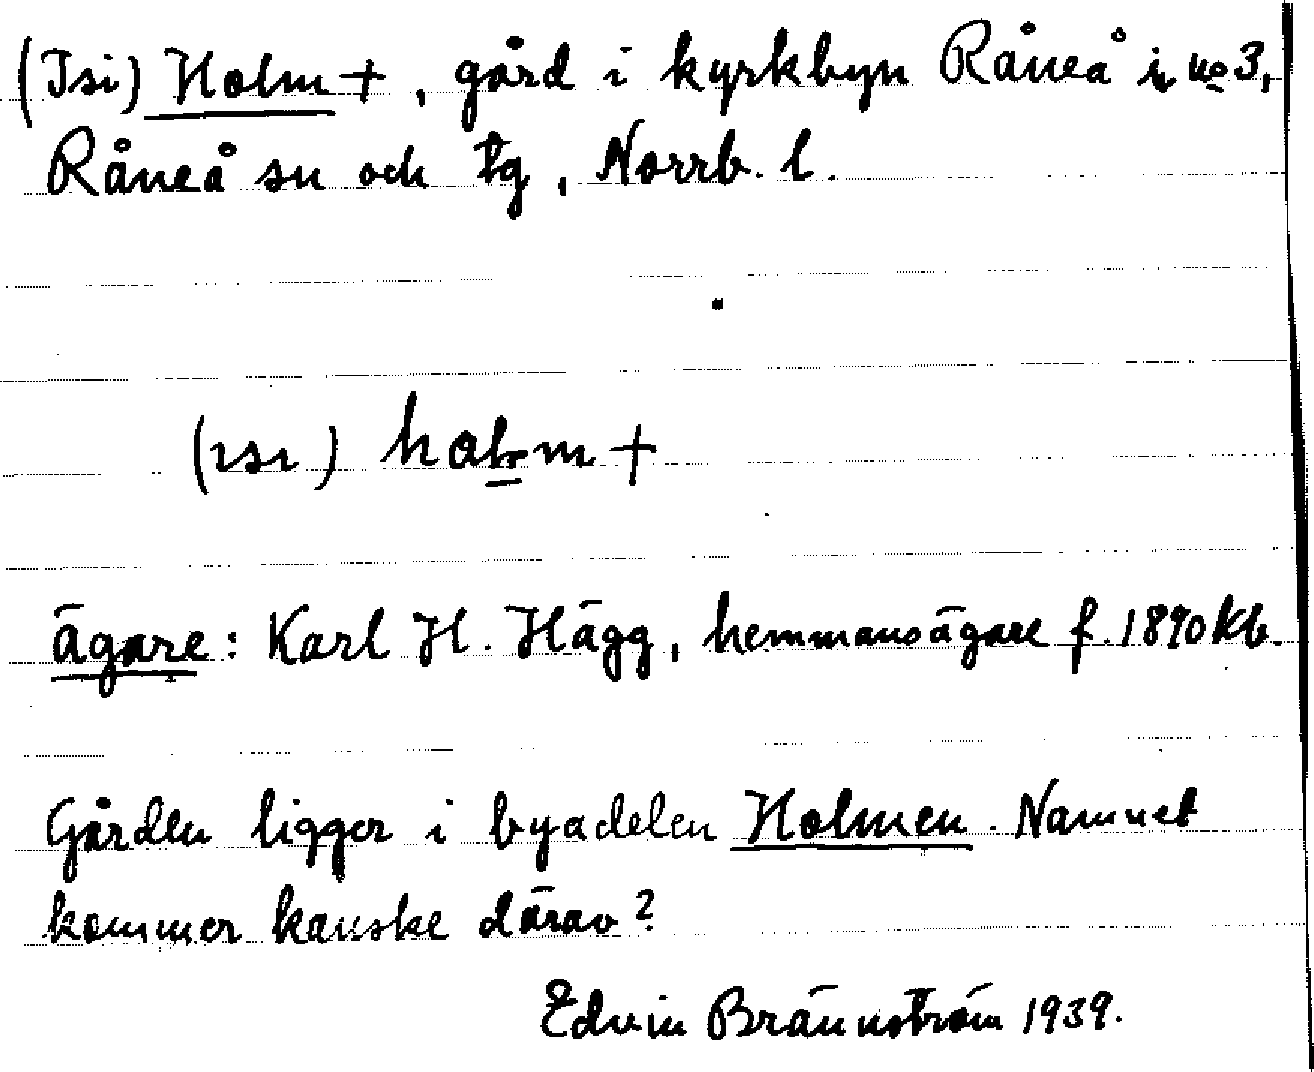 (Isi) Holm +, gård i kyrkbyn Råneå i no 3,
Råneå sn och tg, Norrb. l.
(ısı) halm +
ägare: Karl H. Hägg, hemmansägare f. 1890 Kb.
Gården ligger i byadelen Holmen. Namnet
kommer kanske därav?
Edvin Brännström 1939.